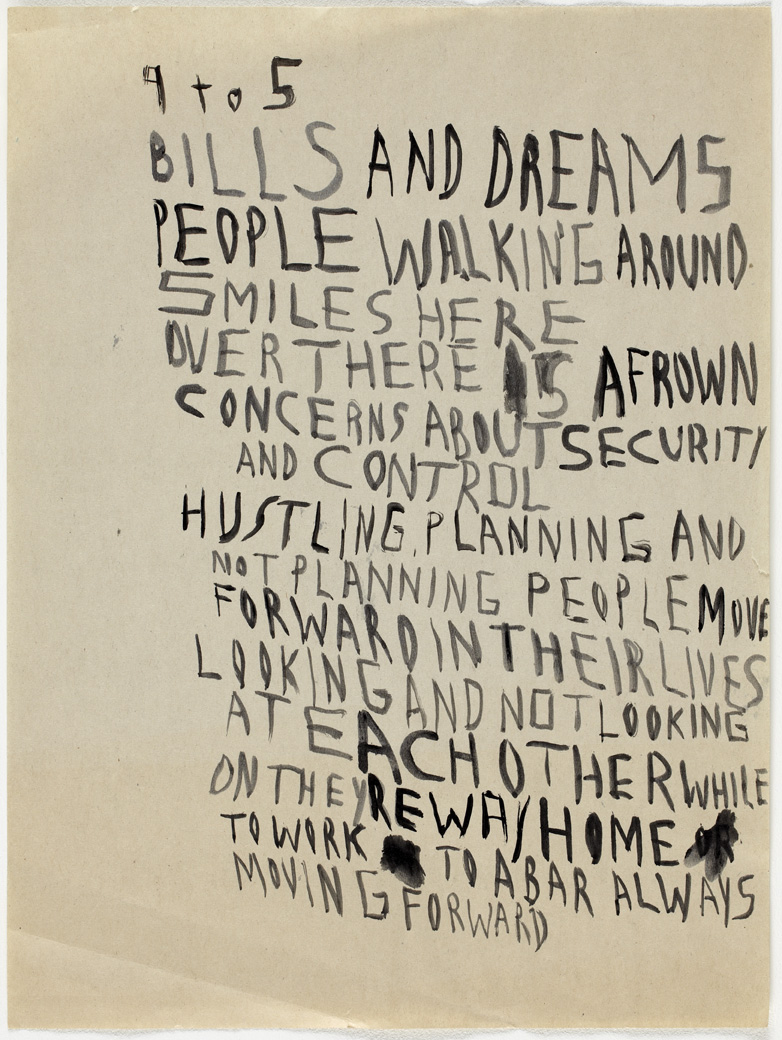 9 to 5
BILLS AND DREAMS
PEOPLE WALKING AROUND
SMILES HERE
OVER THERE IS A FROWN
CONCERNS ABOUT SECURITY
AND CONTROL
HUSTLING, PLANNING AND
NOT PLANNING PEOPLE MOVE
FORWARD IN THEIR LIVES
LOOKING AND NOT LOOKING
AT EACH OTHER WHILE
ON THEYRE WAY HOME OR
TO WORK TO A BAR ALWAYS
MOVING FORWARD